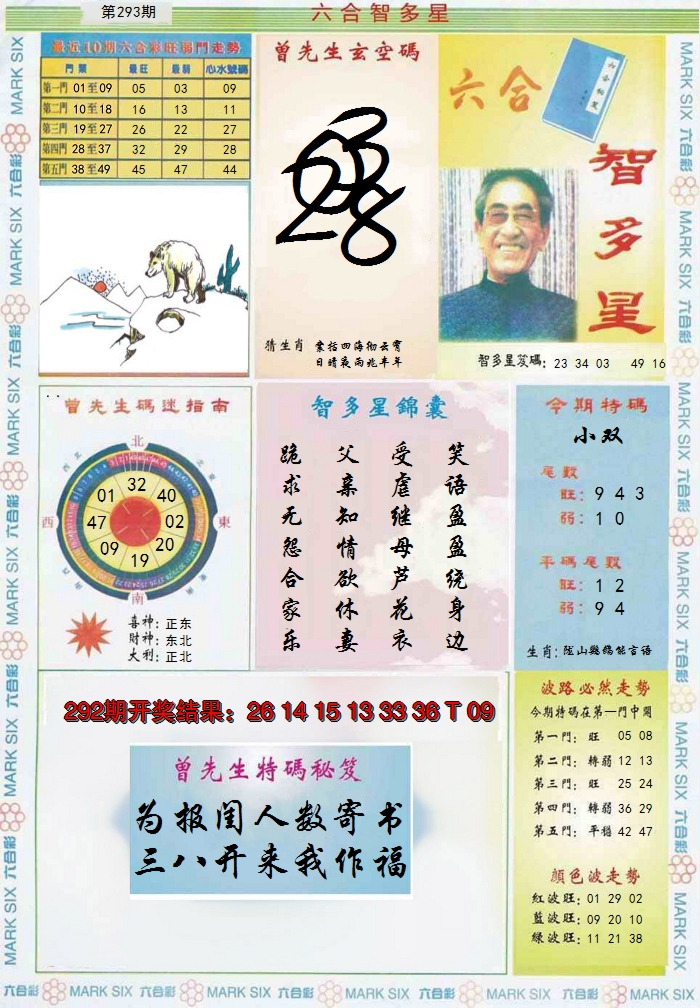 第293期
六合智多星
最近10期六合彩旺弱門走勢
門類 最旺 最弱 心水號碼
第一門 01至09 05 03 09
第二門 10至18 16 13 11
第三門 19至27 26 22 27
第四門 28至37 32 29 28
第五門 38至49 45 47 44
曾先生玄空碼
猜生肖 囊括四海彻云霄
日晴夜雨兆丰年
六合
智多星
智多星笈碼: 23 34 03 49 16
曾先生碼迷指南
北
西
東
南
32
40
02
20
19
09
47
01
喜神: 正东
财神: 东北
大利: 正北
智多星錦囊
跪求无怨合家乐
父亲知情欲休妻
受虐继母芦花衣
笑语盈盈绕身边
今期特碼
小双
尾數
旺: 9 4 3
弱: 1 0
平碼尾數
旺: 1 2
弱: 9 4
生肖: 陇山鹦鹉能言语
292期开奖结果: 26 14 15 13 33 36 T 09
曾先生特碼秘笈
为报闺人数寄书
三八开来我作福
波路必然走勢
今期特碼在第一門中開
第一門: 旺 05 08
第二門: 轉弱 12 13
第三門: 旺 25 24
第四門: 轉弱 36 29
第五門: 平穩 42 47
顏色波走勢
紅波旺: 01 29 02
藍波旺: 09 20 10
綠波旺: 11 21 38
六合彩 MARK SIX 六合彩 MARK SIX 六合彩 MARK SIX 六合彩 MARK SIX 六合彩